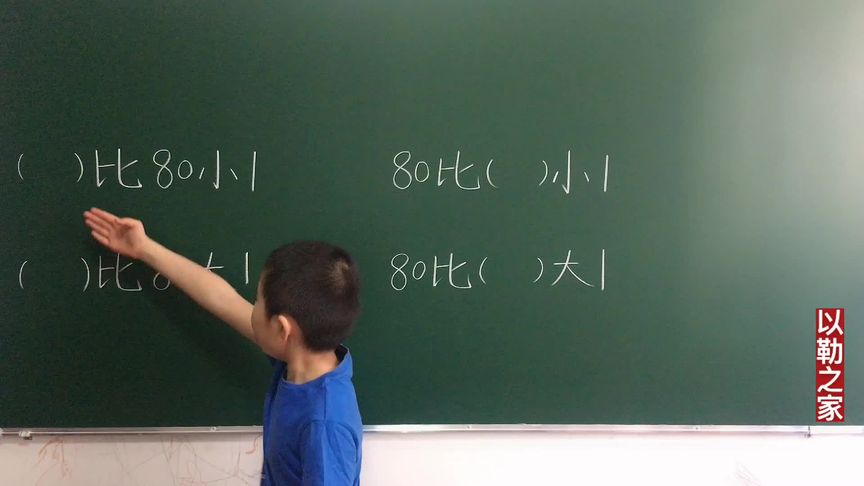 ( )比80小1
80比( )小1
( )比8 大1
80比( )大1
以勒之家